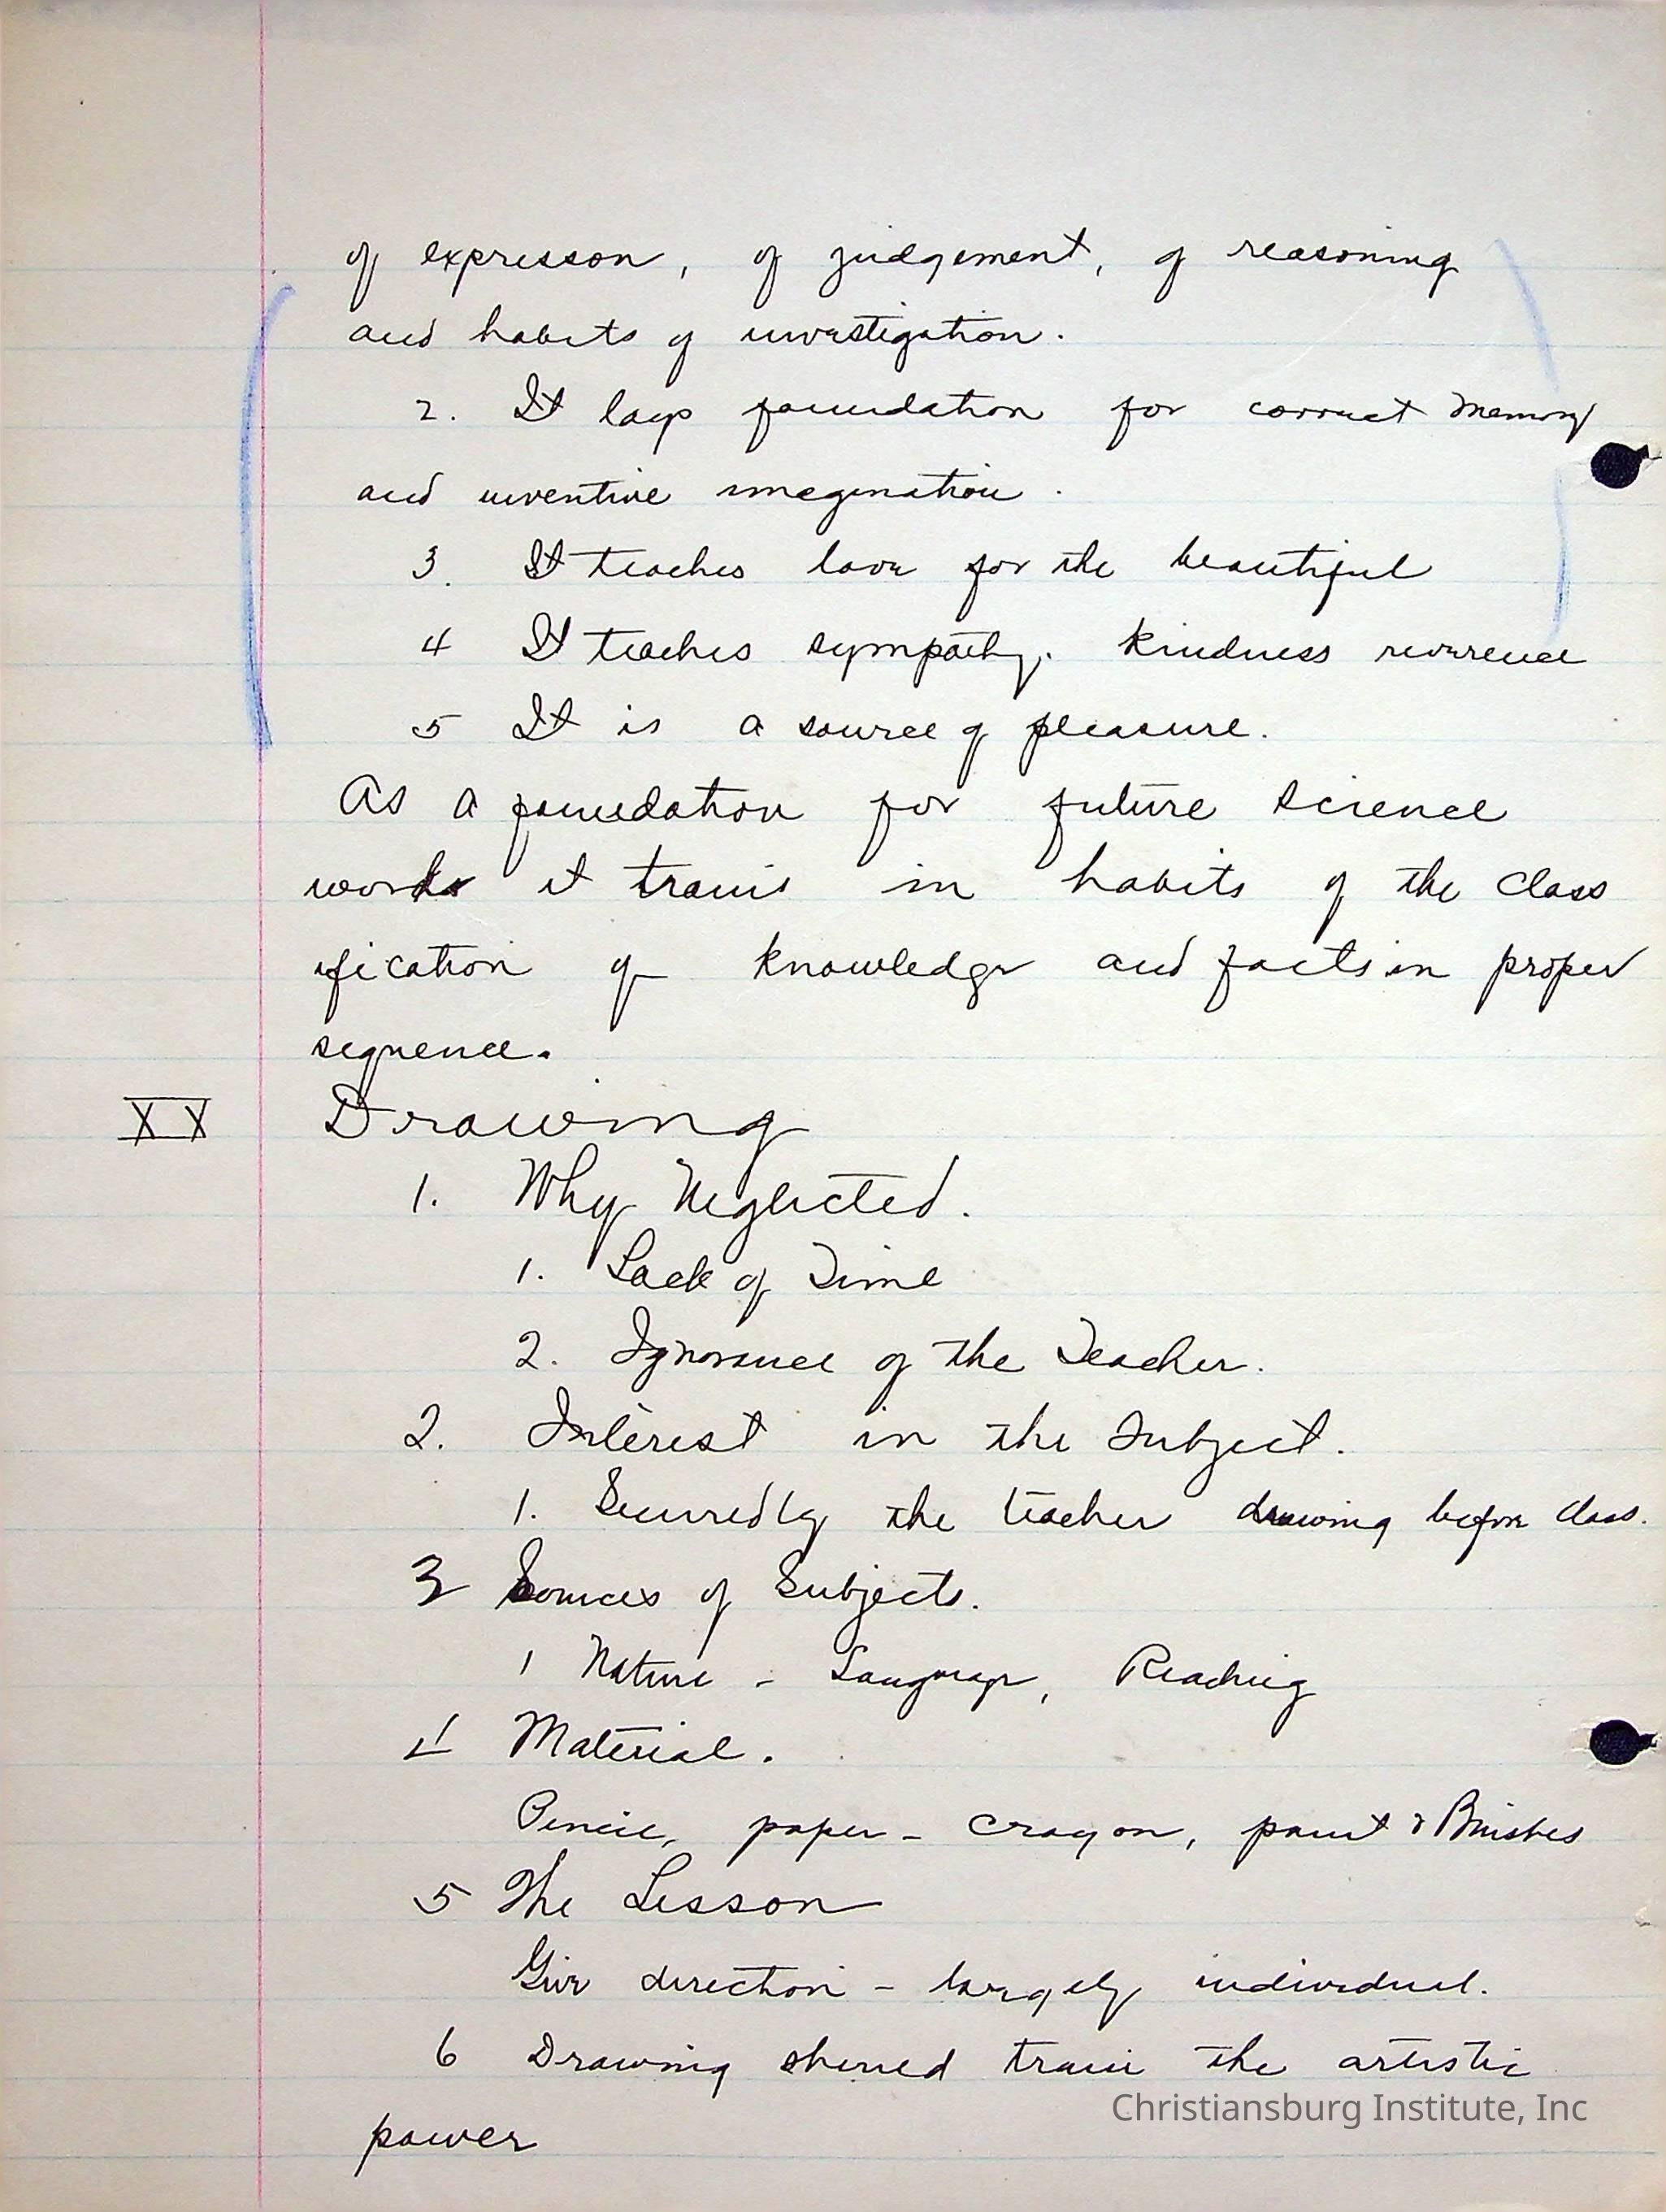 of expresson, of judgement, of reasoning
and habits of investigation.
2. It lays foundation for correct memory
and inventive imagination.
3. It teaches love for the beautiful
4 It teaches sympathy. Kindness reverence
5 It is a source of pleasure.
As a foundation for future science
work it trains in habits of the class
ification of knowledge and facts in proper
sequence.
XX Drawing
1. Why Neglected.
1. Lack of Time
2. Ignorance of the Teacher.
2. Interest in the Subject.
1. Secured by the teacher drawing before class.
3 Sources of Subjects.
1 Nature - Language, Reading
4 Material.
Pencil, paper - crayon, paint & Brushes
5 The Lesson
Give direction - largely individual.
6 Drawing should train the artistic
power
Christiansburg Institute, Inc